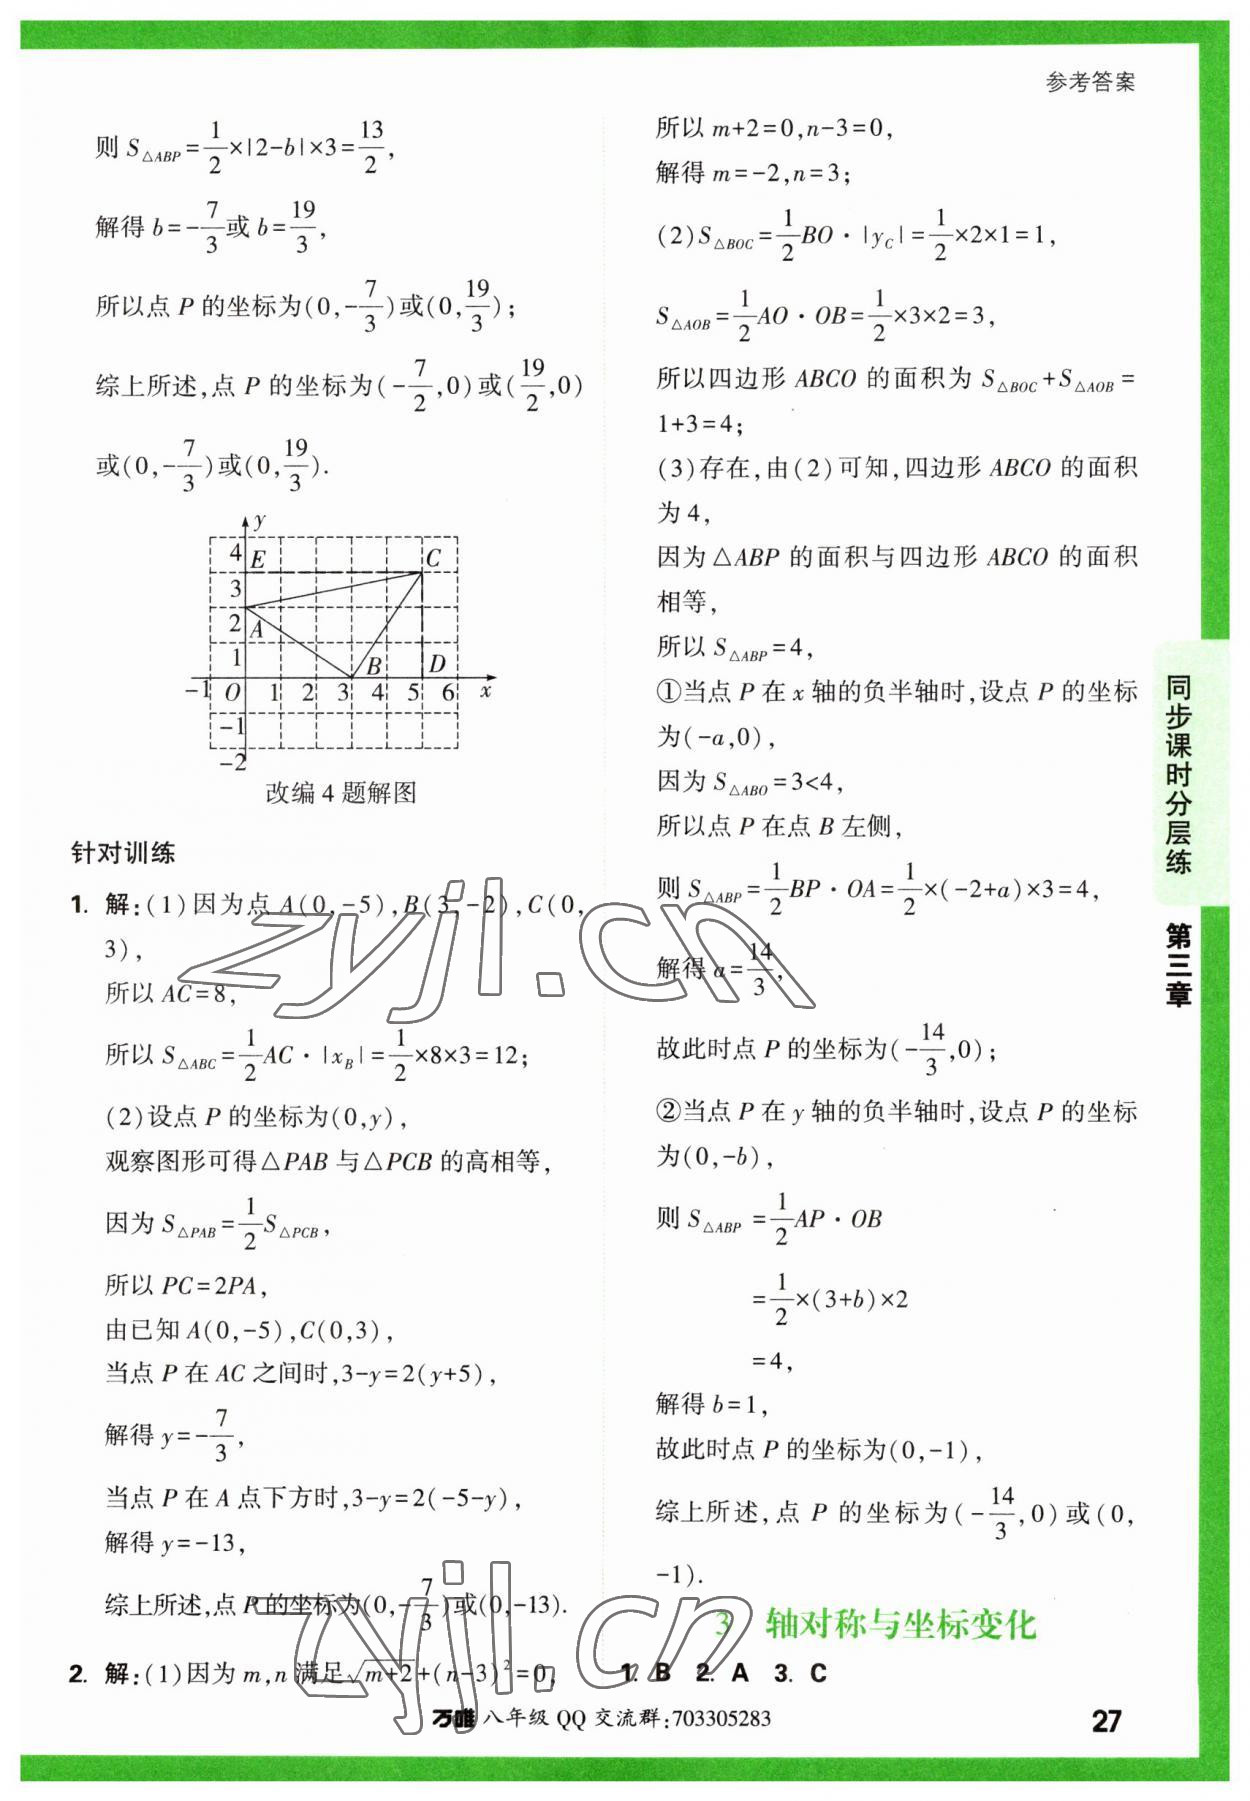 参考答案
则 S△ABP=1/2×|2-b|×3=13/2,
解得 b=-7/3或 b=19/3,
所以点 P 的坐标为(0,-7/3)或(0,19/3);
综上所述,点 P 的坐标为(-7/2,0)或(19/2,0)
或(0,-7/3)或(0,19/3).
y
4 E C
3
2 A
1 B D
-1 O 1 2 3 4 5 6 x
-1
-2
改编 4 题解图
针对训练
1. 解:(1)因为点 A(0,-5),B(3,-2),C(0,
3),
所以 AC=8,
所以 S△ABC=1/2AC·|xB|=1/2×8×3=12;
(2)设点 P 的坐标为(0,y),
观察图形可得△PAB 与△PCB 的高相等,
因为 S△PAB=1/2S△PCB,
所以 PC=2PA,
由已知 A(0,-5),C(0,3),
当点 P 在 AC 之间时,3-y=2(y+5),
解得 y=-7/3,
当点 P 在 A 点下方时,3-y=2(-5-y),
解得 y=-13,
综上所述,点 P 的坐标为(0,-7/3)或(0,-13).
2. 解:(1)因为 m,n 满足√(m+2)+(n-3)²=0,
所以 m+2=0,n-3=0,
解得 m=-2,n=3;
(2)S△BOC=1/2BO·|yC|=1/2×2×1=1,
S△AOB=1/2AO·OB=1/2×3×2=3,
所以四边形 ABCO 的面积为 S△BOC+S△AOB=
1+3=4;
(3)存在,由(2)可知,四边形 ABCO 的面积
为 4,
因为△ABP 的面积与四边形 ABCO 的面积
相等,
所以 S△ABP=4,
①当点 P 在 x 轴的负半轴时,设点 P 的坐标
为(-a,0),
因为 S△ABO=3<4,
所以点 P 在点 B 左侧,
则 S△ABP=1/2BP·OA=1/2×(-2+a)×3=4,
解得 a=14/3,
故此时点 P 的坐标为(-14/3,0);
②当点 P 在 y 轴的负半轴时,设点 P 的坐标
为(0,-b),
则 S△ABP=1/2AP·OB
=1/2×(3+b)×2
=4,
解得 b=1,
故此时点 P 的坐标为(0,-1),
综上所述,点 P 的坐标为(-14/3,0)或(0,
-1).
3 轴对称与坐标变化
1. B 2. A 3. C
同步课时分层练
第三章
万唯 八年级 QQ 交流群:703305283
27
zyjl.cn
zyjl.cn